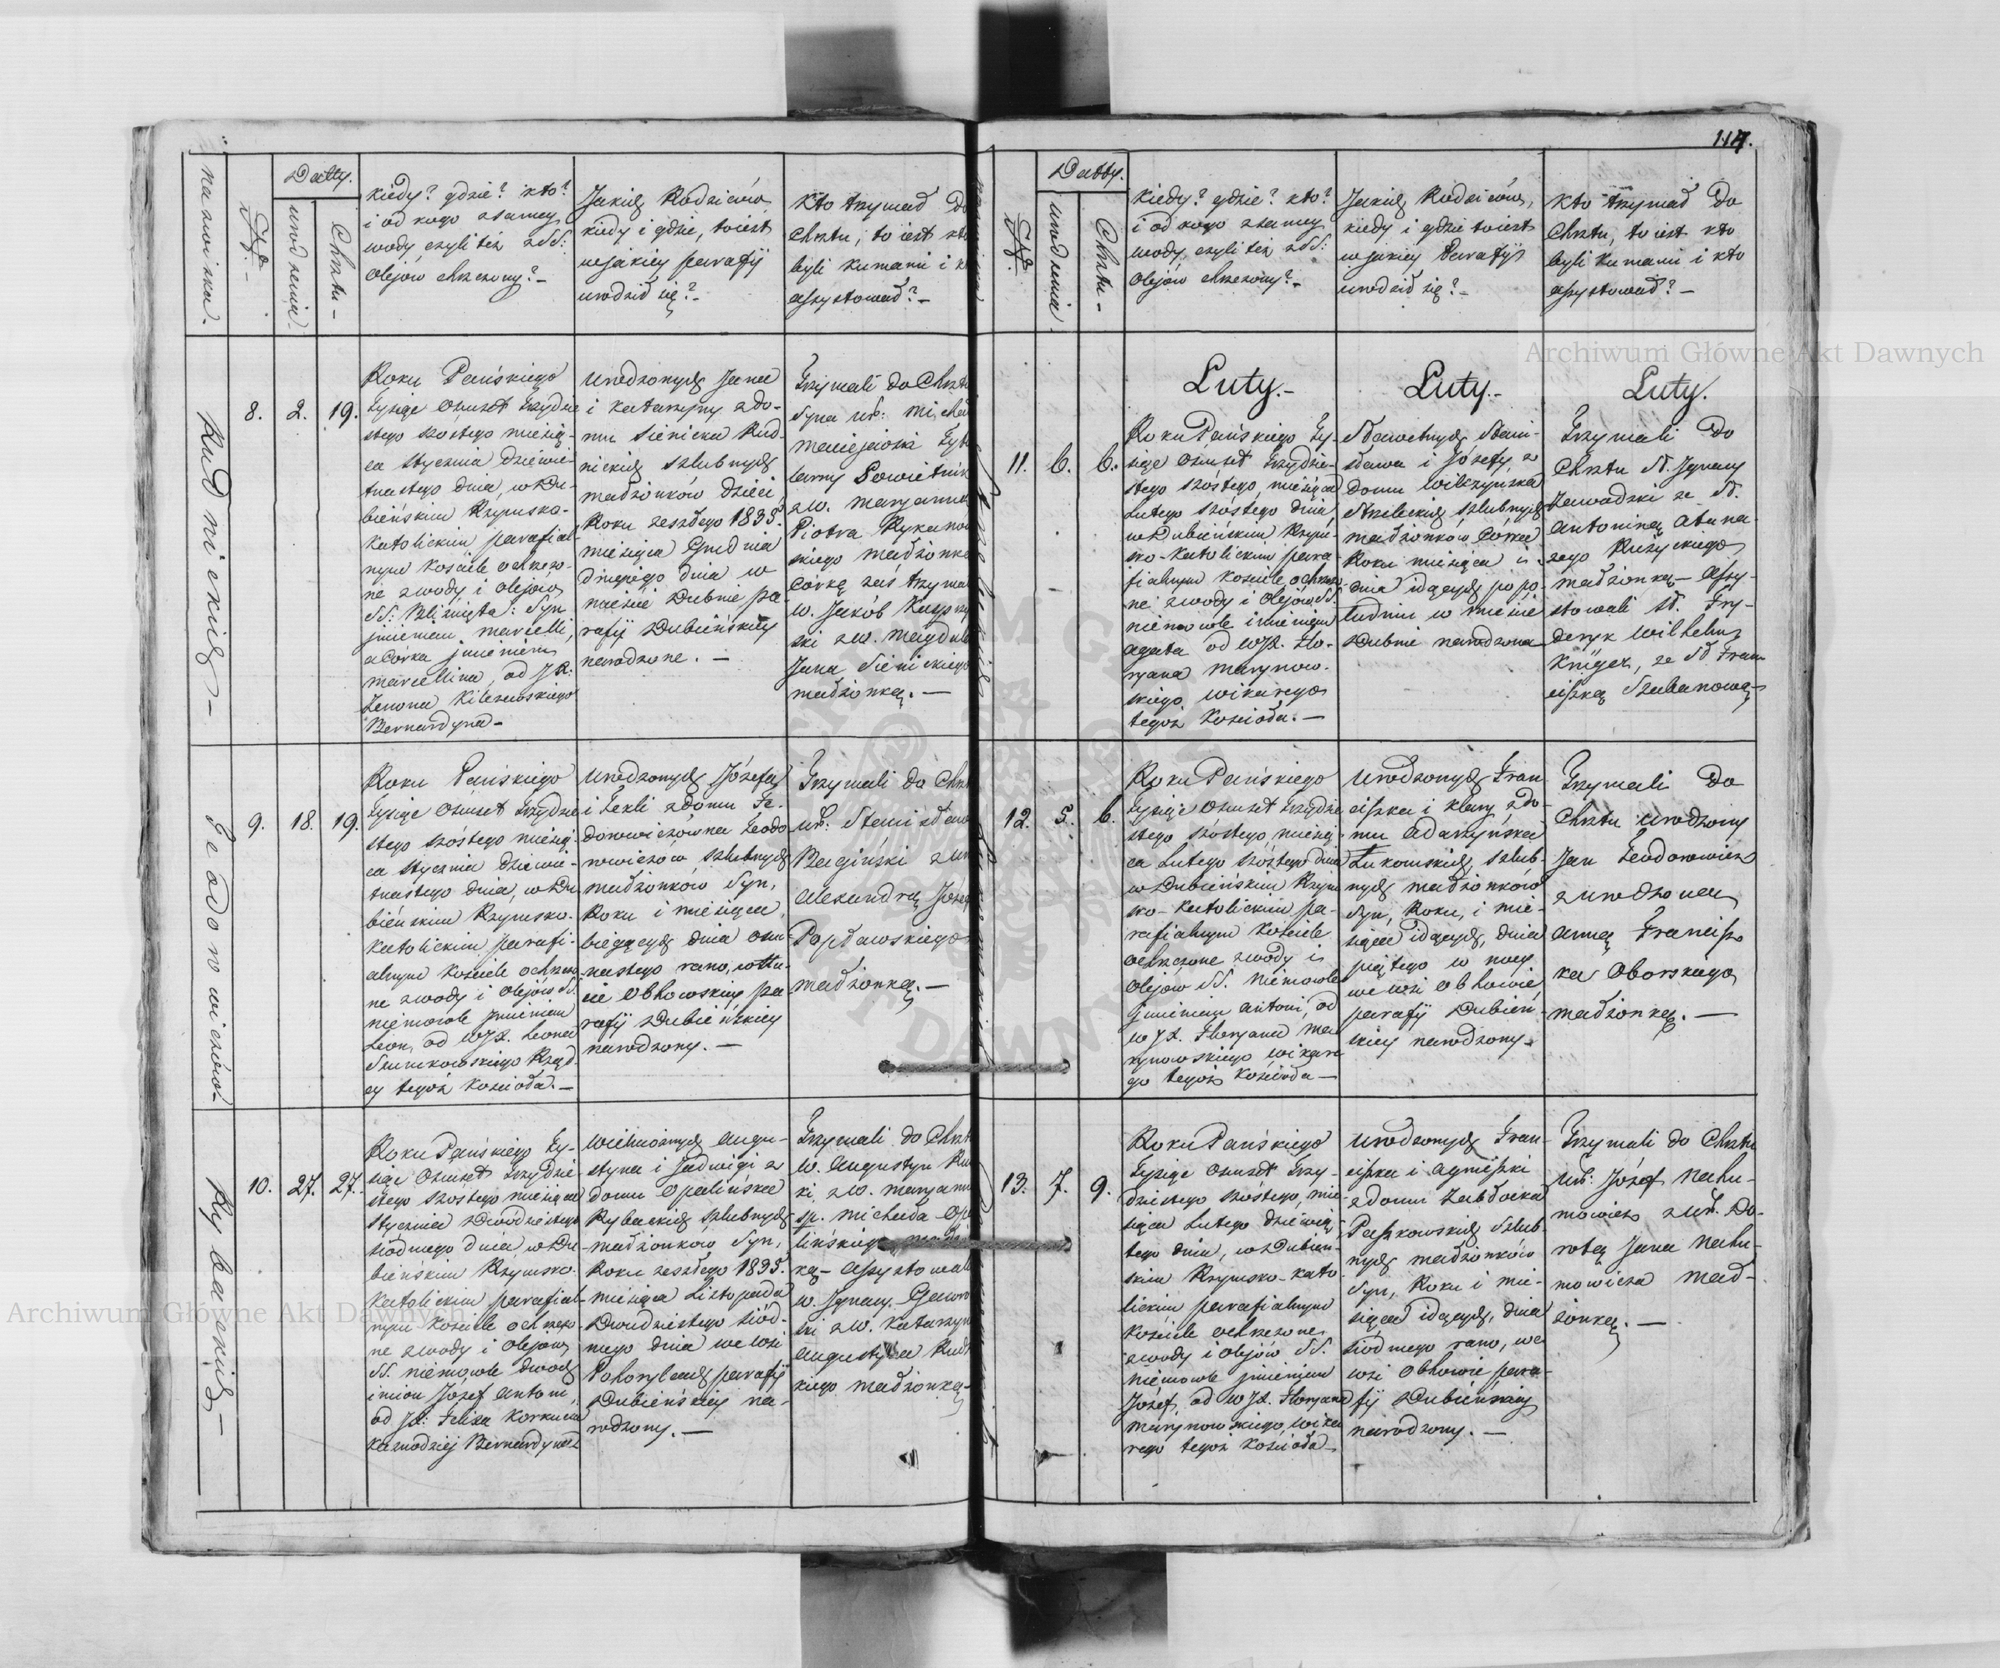 nazwiska.
№.
Datty.
urodzenia.
Chrztu.
Kiedy? gdzie? kto?
i od kogo z samey
wody, czyli też z SS:
Olejów chrzczony?
Jakich Rodziców
kiedy i gdzie, to iest
w jakiey parafij
urodził się?
Kto trzymał Do
Chrztu, to iest kto
byli kumami i
assystował?
Rudnickich
8.
2.
19.
Roku Pańskiego
tysiąc osmset trzydzie
stego szóstego miesią-
ca stycznia dziewię-
tnastego dnia, w Du-
bieńskim Rzymsko-
katolickim parafial-
nym kościele ochrzczo-
ne z wody i olejów
SS: bliźnięta: syn
jmieniem Marcelli,
a córka jmieniem
Marcellina, od JX.
Zenona Kilczewskiego
Bernardyna
Urodzonych Jana
i Katarzyny z do-
mu Sienicka Rud-
nickich szlubnych
małżonków dzieci,
Roku zeszłego 1835.
miesiąca Grudnia
drugiego dnia w
mieście Dubnie pa-
rafij Dubieńskiey
narodzone.
Trzymali do Chrztu
Syna Ur:
Maciejowski
larny Sowietnik
z W. Maryanną
Piotra
skiego małżonką
Córkę zaś
W. Jakób
ski z W. Magdaleną
Jana Sienickiego
małżonką.
Teodorowiczów
9.
18.
19.
Roku Pańskiego
tysiąc osmset trzydzie
stego szóstego miesią
ca stycznia dziewię-
tnastego dnia, w Du
bieńskim Rzymsko-
katolickim parafi-
alnym kościele ochrzczo
ne z wody i Olejów SS.
niemowle jmieniem
Leon, od WJX. Leona
go Rząd-
cy tegoż kościoła.
Urodzonych Józefa
i Tekli z domu Fe-
donowiczówna Teodo-
rowiczów szlubnych
małżonków Syn,
Roku i miesiąca
bieżących dnia ośm-
nastego rano,
parafij Dubieńskiey
narodzony.
Trzymali do Chrztu
Ur: Stanisław
Bagiński z Ur:
Alexandrą Józefa
Popławskiego
małżonką.
Rybackich
10.
27.
27.
Roku Pańskiego ty-
siąc osmset trzydzie
stego szóstego miesiąca
stycznia dwódziestego
siódmego dnia w Du
bieńskim Rzymsko-
katolickim parafial-
nym kościele ochrzczo
ne z wody i olejów
SS. niemowle dwóch
imion Józef Antoni,
od JX: Felixa
kaznodziej Bernardynów
Wielmożnych Augu-
styna i Jadwigi z
domu Opalińska
Rybackich szlubnych
małżonków Syn,
Roku zeszłego 1835.
miesiąca Listopada
dwódziestego siód-
mego dnia we wsi
Pohorylcach parafij
Dubieńskiey na-
rodzony.
Trzymali do Chrztu
W. Augustyn
ki, z W. Maryanną
Michała Opa
lińskiego
ką - Assystowali
W. Ignacy
ski z W. Katarzyną
Augustyna
kiego małżonką
114.
№.
Datty.
urodzenia.
Chrztu.
Kiedy? gdzie? kto?
i od kogo z samey
wody, czyli też z SS:
Olejów chrzczony?
Jakich Rodziców,
kiedy i gdzie to iest
w jakiey Parafij
urodził się?
Kto trzymał Do
Chrztu, to iest kto
byli kumami i kto
assystował?
Luty.
Luty.
Luty.
11.
6.
6.
Roku Pańskiego ty-
siąc osmset trzydzie-
stego szóstego, miesiąca
Lutego szóstego dnia,
w Dubieńskim Rzym-
sko-katolickim para
fialnym kościele ochrzczo-
ne z wody i Olejów SS.
niemowle imieniem
Agata od WJX. Flo-
ryana Marynow-
skiego, wikarego
tegoż kościoła.
Sławetnych Stani-
sława i Józefy, z
domu Wilczyńska
szlubnych
małżonków Córka
Roku miesiąca i
dnia idących po po-
łudniu w mieście
Dubnie narodzona
Trzymali Do
Chrztu Sł. Jgnacy
Zawadzki ze Sł.
Antoniną Atana-
zego Rużyckiego
małżonką - Assy-
stowali Sł. Fry-
deryk Wilhelm
Krüger, ze Sł. Fran
ciszką Szubanową
12.
5.
6.
Roku Pańskiego
tysiąc osmset trzydzie
stego szóstego, miesią
ca Lutego szóstego dnia
w Dubieńskim Rzym
sko-katolickim pa-
rafialnym kościele
ochrzczone z wody i
Olejów SS. niemowle
jmieniem Antoni, od
WJX. Floryana Ma
rynowskiego, wikare
go tegoż kościoła
Urodzonych Fran
ciszka i Klary z do-
mu Adaszyńska
Łukomskich, szlub-
nych małżonków
Syn, Roku, i mie-
siąca idących, dnia
piątego w nocy
we wsi Obhowie
parafij Dubień-
skiey narodzony.
Trzymali Do
Chrztu Urodzony
Jan Teodorowicz
z Urodzoną
Anną Francisz
ka Oborskiego
małżonką.
13.
7.
9.
Roku Pańskiego
tysiąc osmset trzy-
dziestego szóstego, mie-
siąca Lutego dziewią-
tego dnia, w Dubień-
skim Rzymsko-kato-
lickim parafialnym
kościele ochrzczone
z wody i olejów SS.
niemowle jmieniem
Józef, od WJX. Floryana
Marynowskiego, wika
rego tegoż kościoła
Urodzonych Fran-
ciszka i Agniszki
z domu Zabłocka
Paszkowskich szlub-
nych małżonków
Syn, Roku i mie-
siąca idących, dnia
siódmego rano, we
wsi Obhowie para-
fij Dubieńskiey
narodzony.
Trzymali do Chrztu
Ur: Józef Nahu-
mowicz z Ur. Do-
rotą Jana Nahu-
mowicza mał-
żonką.
Archiwum Główne Akt Dawnych
Archiwum Główne Akt Dawnych